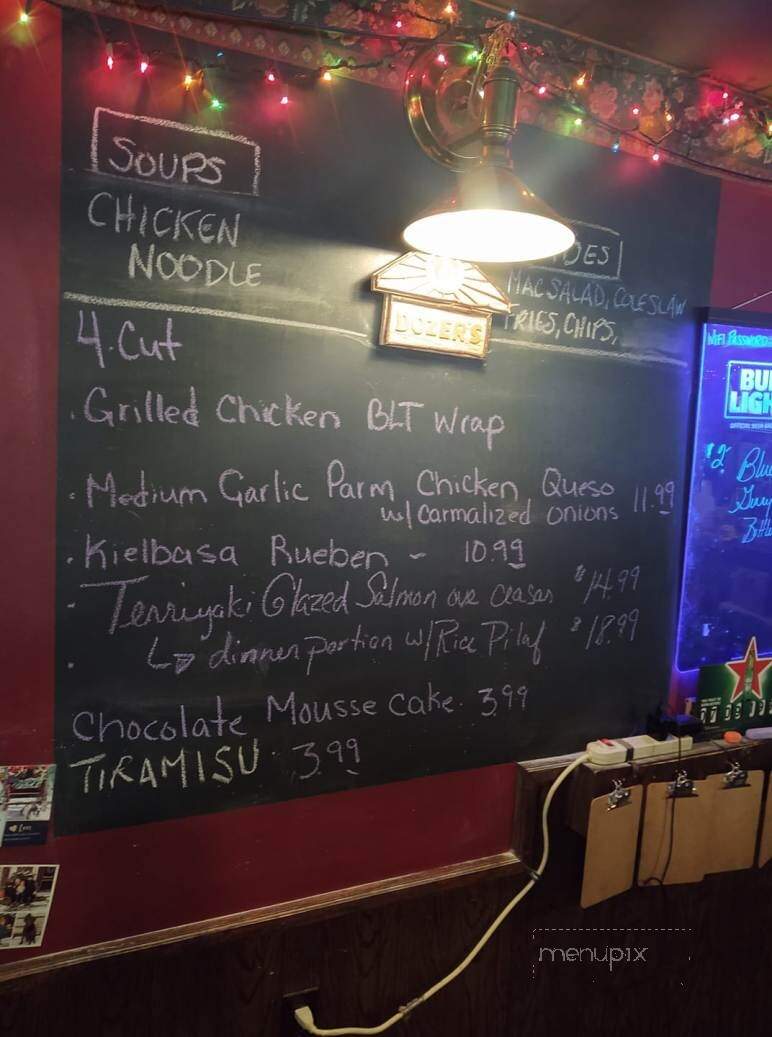 SOUPS
CHICKEN
NOODLE
DES
MAC SALAD, COLESLAW
FRIES, CHIPS,
DOZER'S
4. Cut
. Grilled Chicken BLT Wrap
. Medium Garlic Parm Chicken Queso 11.99
w/ carmalized onions
. Kielbasa Rueben - 10.99
- Terriyaki Glazed Salmon ove ceasar $14.99
↳ dinner portion w/ Rice Pilaf $18.99
Chocolate Mousse cake. 3.99
TIRAMISU . 3.99
WIFI PASSWORD
BUD
LIGHT
$2 Blue
menupix